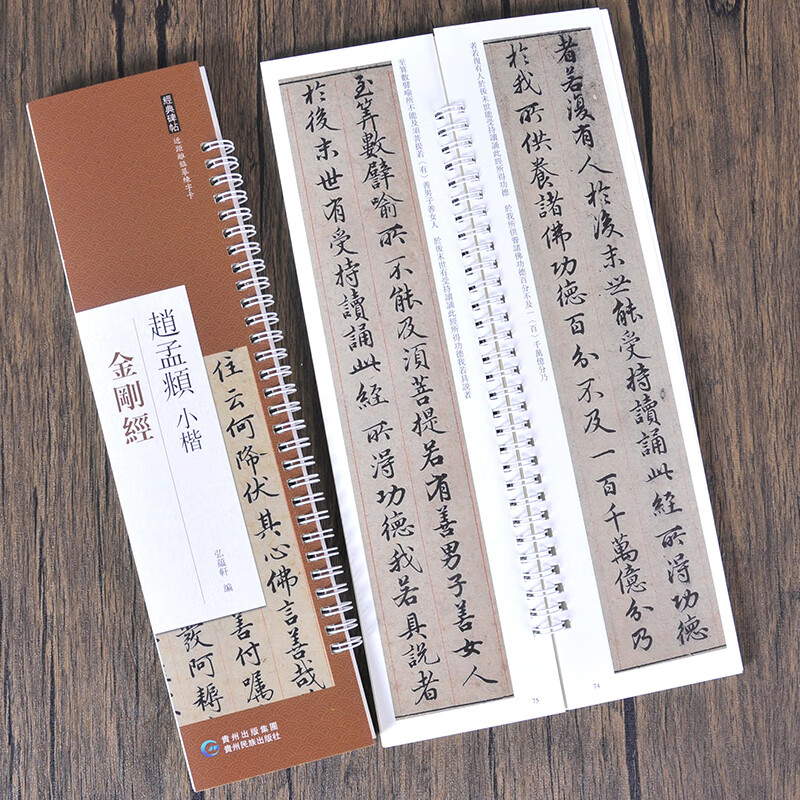 經典碑帖
近距離臨摹練字卡
趙孟頫 小楷
金剛經
弘蘊軒 編
住云何降伏其心佛言善哉
善付囑
發阿耨
貴州出版集團
貴州民族出版社
者若復有人於後末世能受持讀誦此經所得功德
於我所供養諸佛功德百分不及一百千萬億分乃
者若復有人於後末世能受持讀誦此經所得功德 於我所供養諸佛功德百分不及一（百）千萬億分乃
74
至筭數譬喻所不能及須菩提若有善男子善女人
於後末世有受持讀誦此經所得功德我若具説者
至算數譬喻所不能及須菩提若（有）善男子善女人 於後末世有受持讀誦此經所得功德我若具説者
75